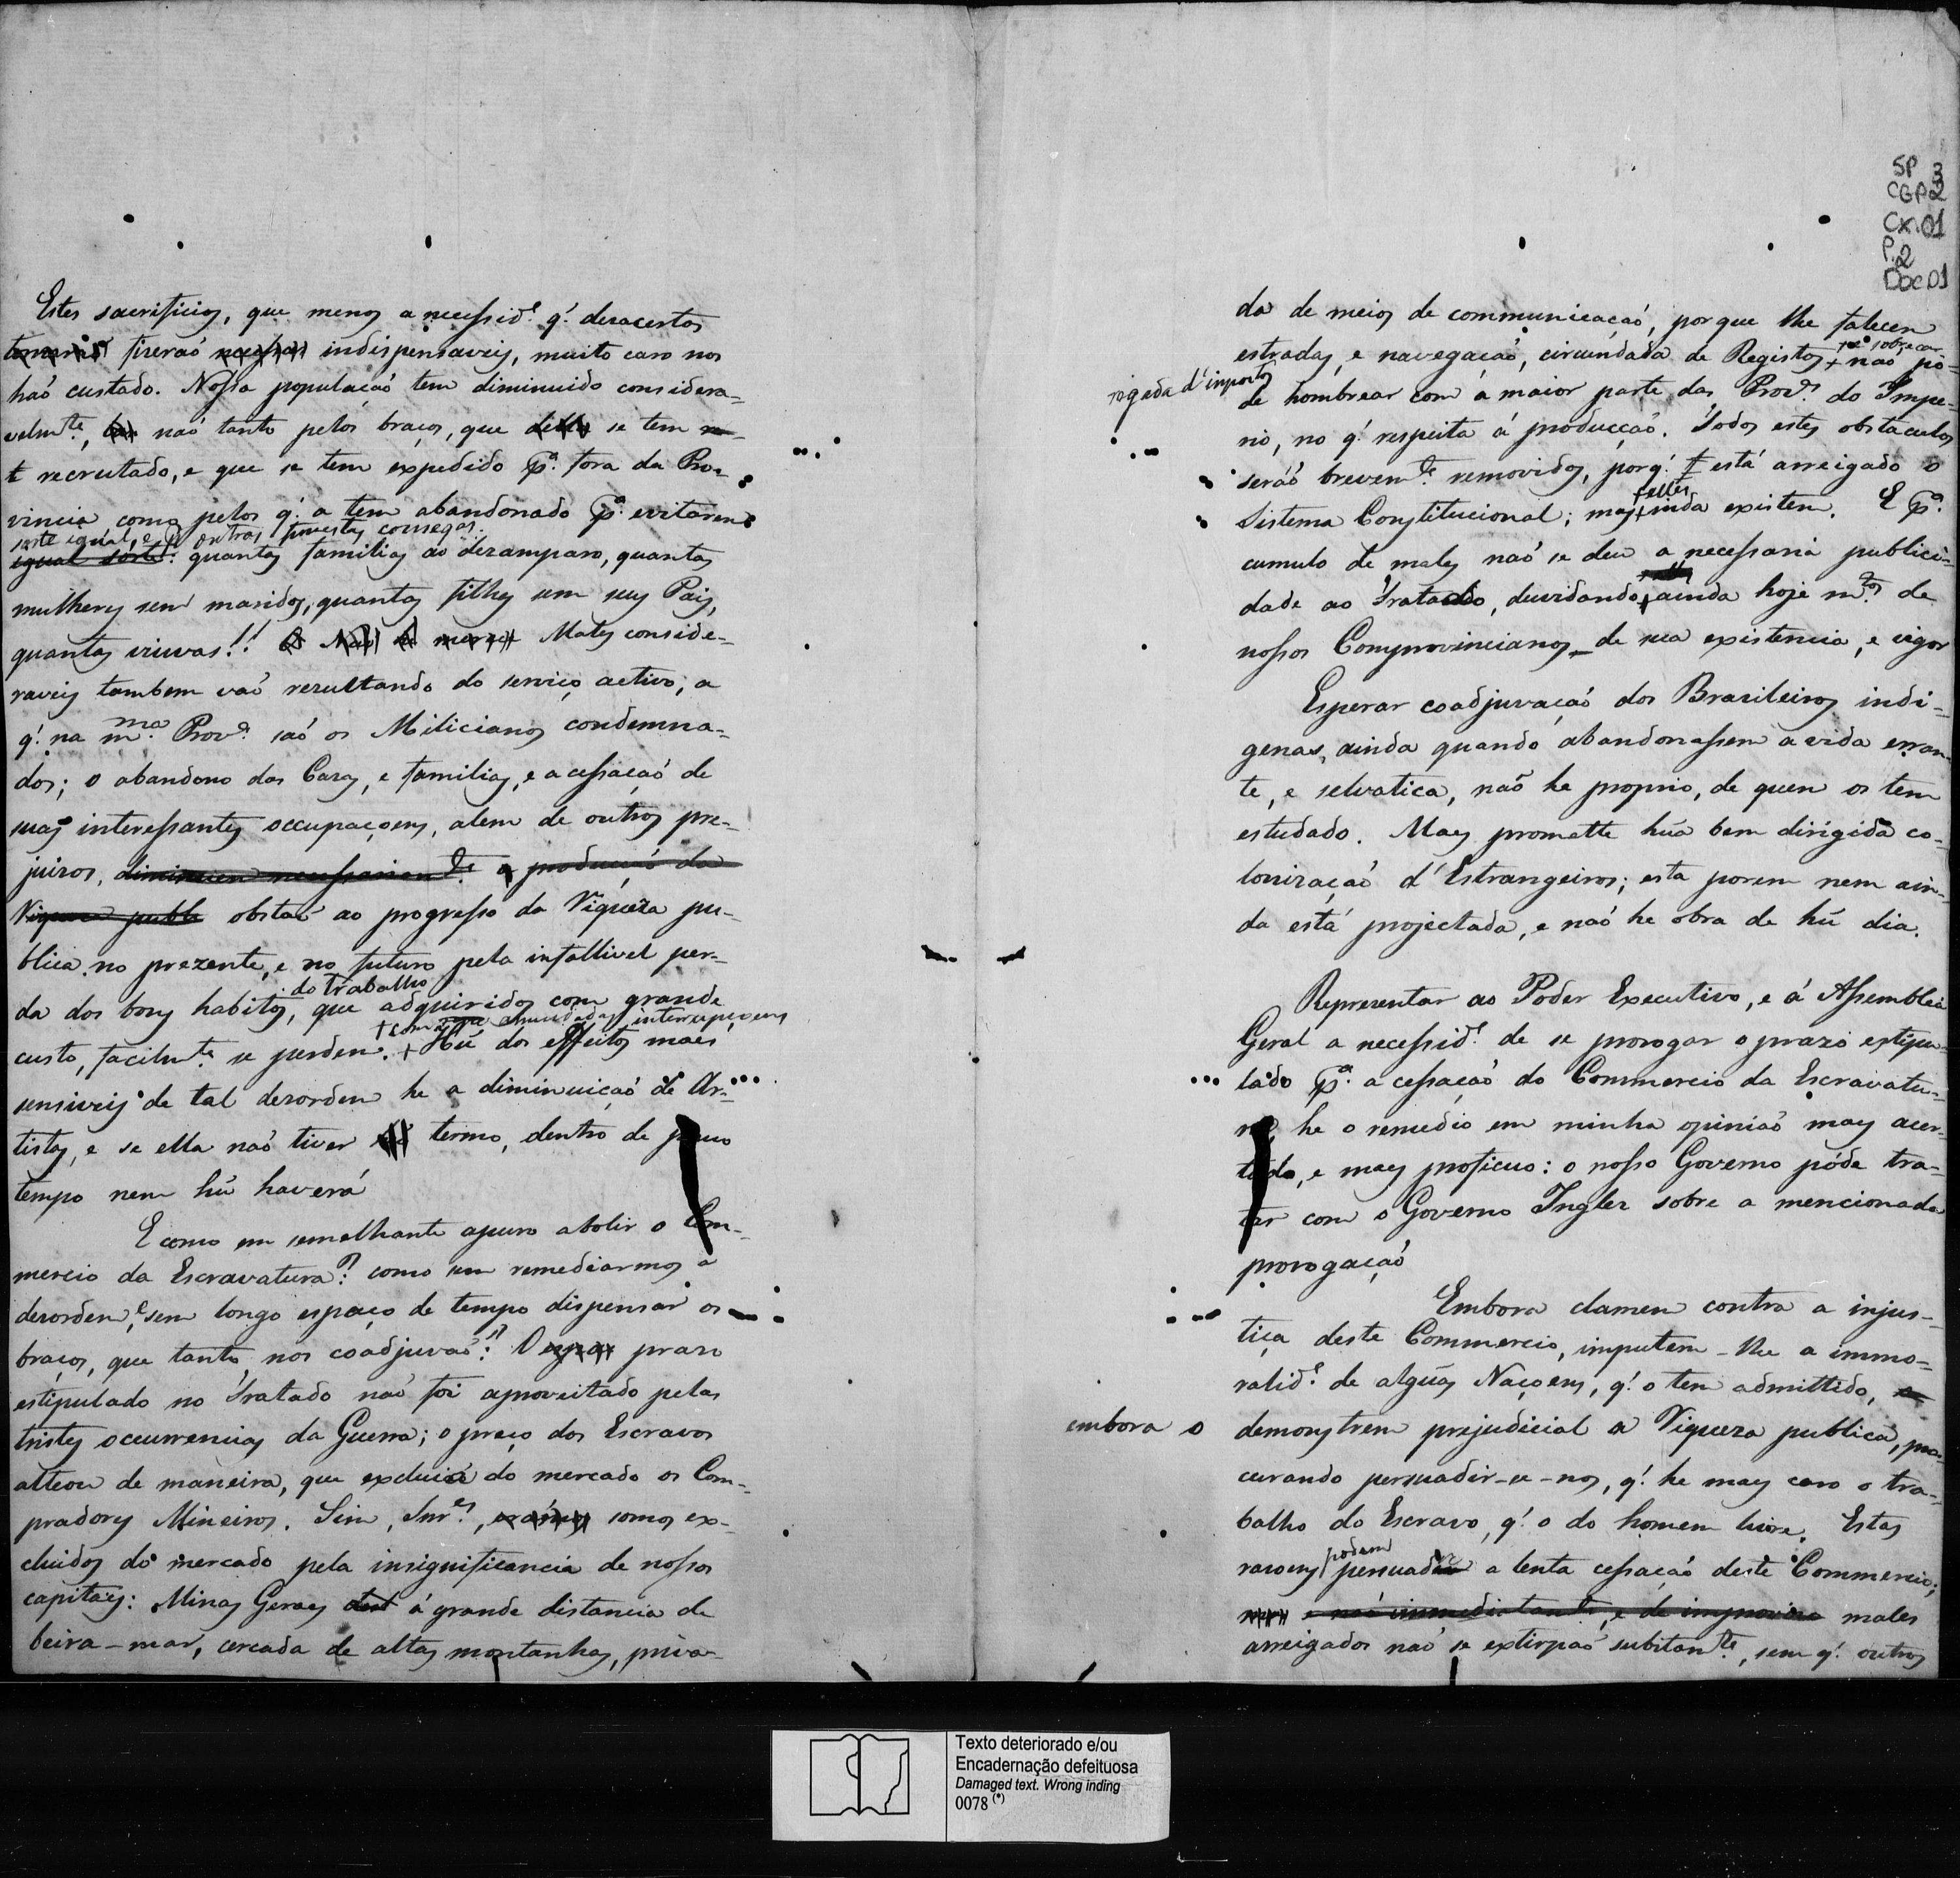 Estes sacrificios, que menos a necessid.e q.' desacertos
fizeraó indispensaveis, muito caro nos
haó custado. Nossa populaçaó tem diminuido considera-
velm.te, naó tanto pelos braços, que se tem
recrutado, e que se tem expedido p.a fora da Pro-
vincia, como pelos q.' a tem abandonado p.a evitarem
sorte igual, e outras funestas conseq.as
igual sorte: quantas familias ao dezamparo, quantas
mulheres sem maridos, quantos filhos sem seus Pais,
quantas viuvas!! Males conside-
raveis tambem vaó rezultando do serviço activo, a
q.' na m.ma Prov.a saó os Milicianos condemna-
dos; o abandono das Cazas, e familias, e a cessaçaó de
suas interessantes occupaçoens, alem de outros pre-
juizos, diminuem necessariam.te a producçaó da
Riqueza publi obstaó ao progresso da Riqueza pu-
blica no prezente, e no futuro pela infallivel per-
da dos bons habitos, que adquiridos com grande
do trabalho
custo, facilm.te se perdem. + Hũ dos effeitos mais
+ com interrupçoens
sensiveis de tal desordem he a diminuiçaó de Ar-
tistas, e se ella naó tiver termo, dentro de pouco
tempo nem hũ haverá
E como em semelhante apuro abolir o Com-
mercio da Escravatura? como sem remediarmos a
desordem, e sem longo espaço de tempo dispensar os
braços, que tanto nos coadjuvaó? O prazo
estipulado no Tratado naó foi aproveitado pelas
tristes occurrencias da Guerra; o preço dos Escravos
alteou de maneira, que excluio do mercado os Com-
pradores Mineiros. Sim, Snr.es, somos ex-
cluidos do mercado pela insignificancia de nossos
capitaes: Minas Geraes á grande distancia de
beira-mar, cercada de altas montanhas, priva-
SP 3
CGP2
CX.01
P.2
Doc.01
da de meios de communicaçaó, porque lhe falecem
estradas, e navegaçaó, circundada de Registos, + naó pó-
+ e sobrecar
regada d'impostos
de hombrear com a maior parte das Prov.as do Impe-
rio, no q.' respeita á producçaó. Todos estes obstaculos
seráó brevem.te removidos, porq.' está arreigado o
Sistema Constitucional; mas + inda existem. E p.a
+ elles
cumulo de males naó se deu a necessaria publici-
dade ao Tratado, duvidando ainda hoje m.tos de
nossos Comprovincianos de sua existencia, e vigor
Esperar coadjuvaçaó dos Brazileiros indi-
genas, ainda quando abandonassem a vida erran-
te, e selvatica, naõ he proprio, de quem os tem
estudado. Mais promette hũa bem dirigida co-
lonizaçaó d'Estrangeiros; esta porem nem ain-
da está projectada, e naó he obra de hũ dia.
Representar ao Poder Executivo, e á Assemblea
Geral a necessid.e de se prorogar o prazo estipu-
lado p.a a cessaçaó do Commercio da Escravatu-
ra, he o remedio em minha opiniaó mais acer-
tado, e mais proficuo: o nosso Governo póde tra-
tar com o Governo Inglez sobre a mencionada
prorogaçaó
Embora clamem contra a injus-
tiça deste Commercio, imputem-lhe a immo-
ralid.e de algũas Naçoens, q.' o tem admittido,
embora o demonstrem prejudicial a Riqueza publica, pro-
curando persuadir-se-nos, q.' he mais caro o tra-
balho do Escravo, q.' o do homem livre. Estas
razoens persuadir a lenta cessaçaó deste Commercio;
podem
e naó immediatam.te, e de improviso males
arreigados naó se extirpaó subitam.te, sem q.' outros
Texto deteriorado e/ou
Encadernação defeituosa
Damaged text. Wrong inding
0078 (*)